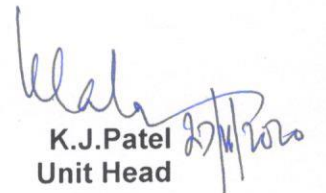 K.J.Patel 27/11/2020
Unit Head